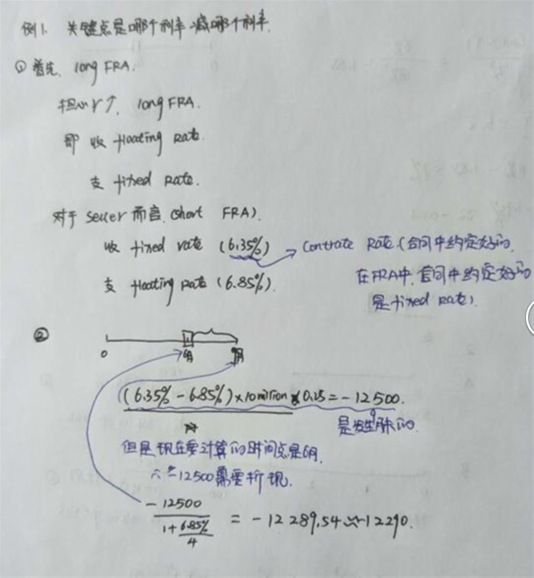 例1. 关键点是哪个利率减哪个利率.
① 首先. long FRA.
担心r↑, long FRA.
即 收 floating rate.
支 fixed rate.
对于 seller 而言. (short FRA).
收 fixed rate (6.35%) → Contrate Rate (合同中约定好的.
支 floating rate (6.85%). 在FRA中, 合同中约定好的
是fixed rate).
②
0 6月 9月
(6.35% - 6.85%) × 10 million × 0.25 = -12500.
是9月的.
但是现在要计算的时间点是6月.
∴ -12500需要折现.
-12500 / (1 + 6.85%/4) = -12289.54 ≈ -12290.